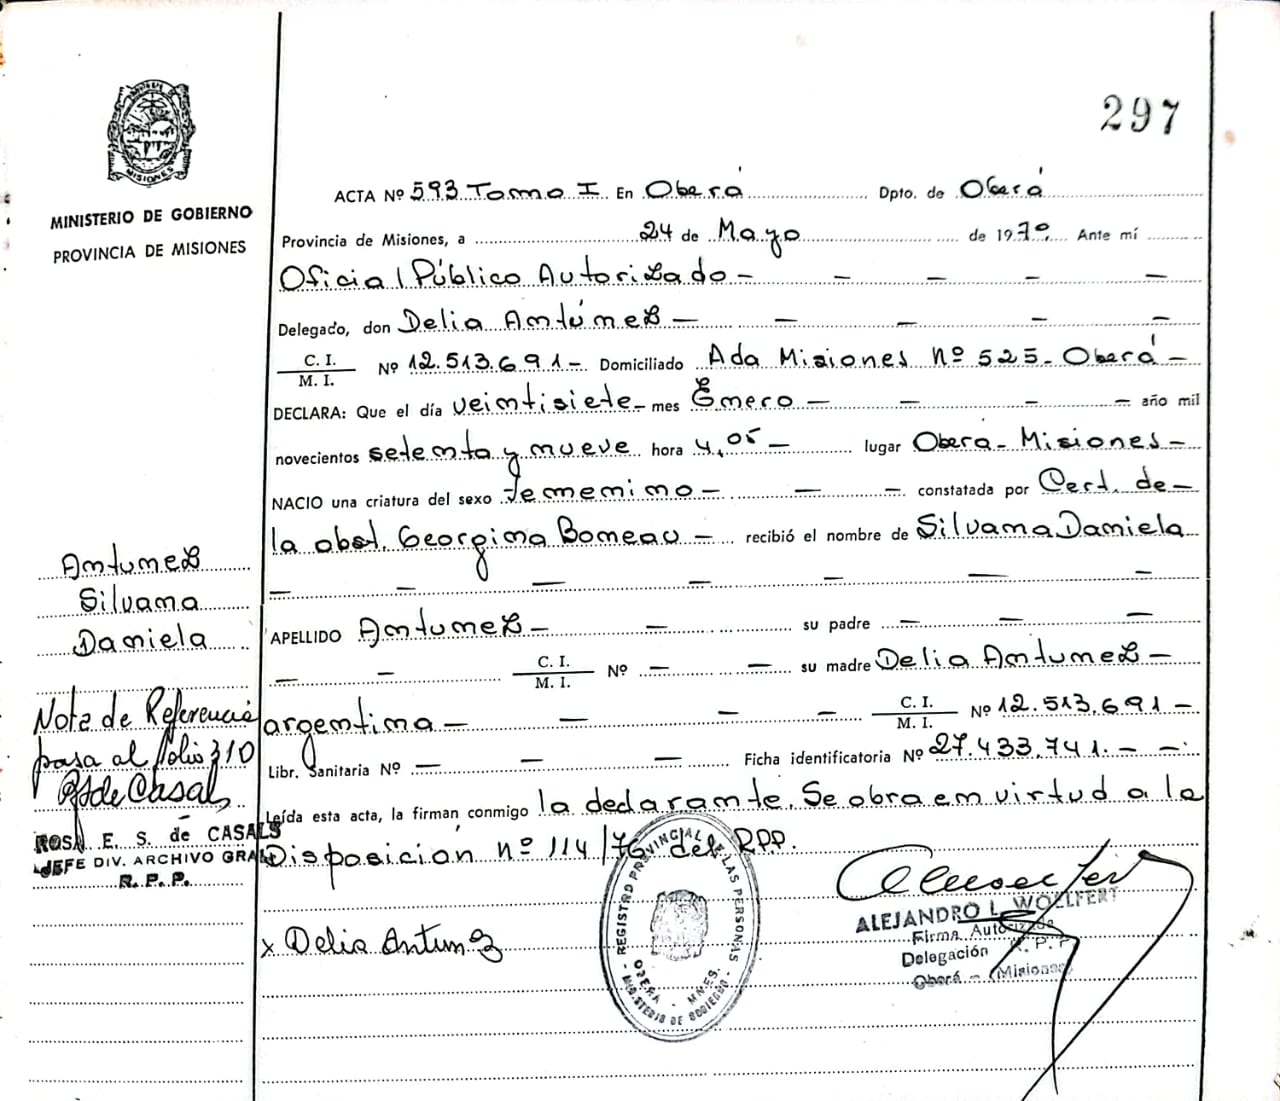 297
MISIONES
MINISTERIO DE GOBIERNO
PROVINCIA DE MISIONES
ACTA Nº 593 Tomo I En Oberá Dpto. de Oberá
Provincia de Misiones, a 24 de Mayo de 1979 Ante mí
Oficial Público Autorizado —
Delegado, don Delia Antúnez —
C. I. / M. I. Nº 12.513.691 - Domiciliado Ada Misiones Nº 525 - Oberá -
DECLARA: Que el día veintisiete - mes Enero — año mil
novecientos setenta y nueve hora 4,05 — lugar Oberá - Misiones -
NACIO una criatura del sexo femenino — constatada por Cert. de -
la obst. Georgina Boneau — recibió el nombre de Silvana Daniela
APELLIDO Antunez - su padre —
— C. I. / M. I. Nº — su madre Delia Antunez -
argentina — C. I. / M. I. Nº 12.513.691 -
Libr. Sanitaria Nº — Ficha identificatoria Nº 27.433.741. -
Leída esta acta, la firman conmigo la declarante. Se obra en virtud a la
Disposición nº 114/76 del RPP.
x Delia Antunez
REGISTRO PROVINCIAL DE LAS PERSONAS
OBERA - MNES.
MINISTERIO DE GOBIERNO
ALEJANDRO L. WOLLFERT
Firma Autorizada
Delegación R. P. P.
Oberá - (Misiones)
Antunez
Silvana
Daniela
Nota de Referencia
pasa al folio 310
RSdeCasals
ROSA E. S. de CASALS
JEFE DIV. ARCHIVO GRAL
R. P. P.